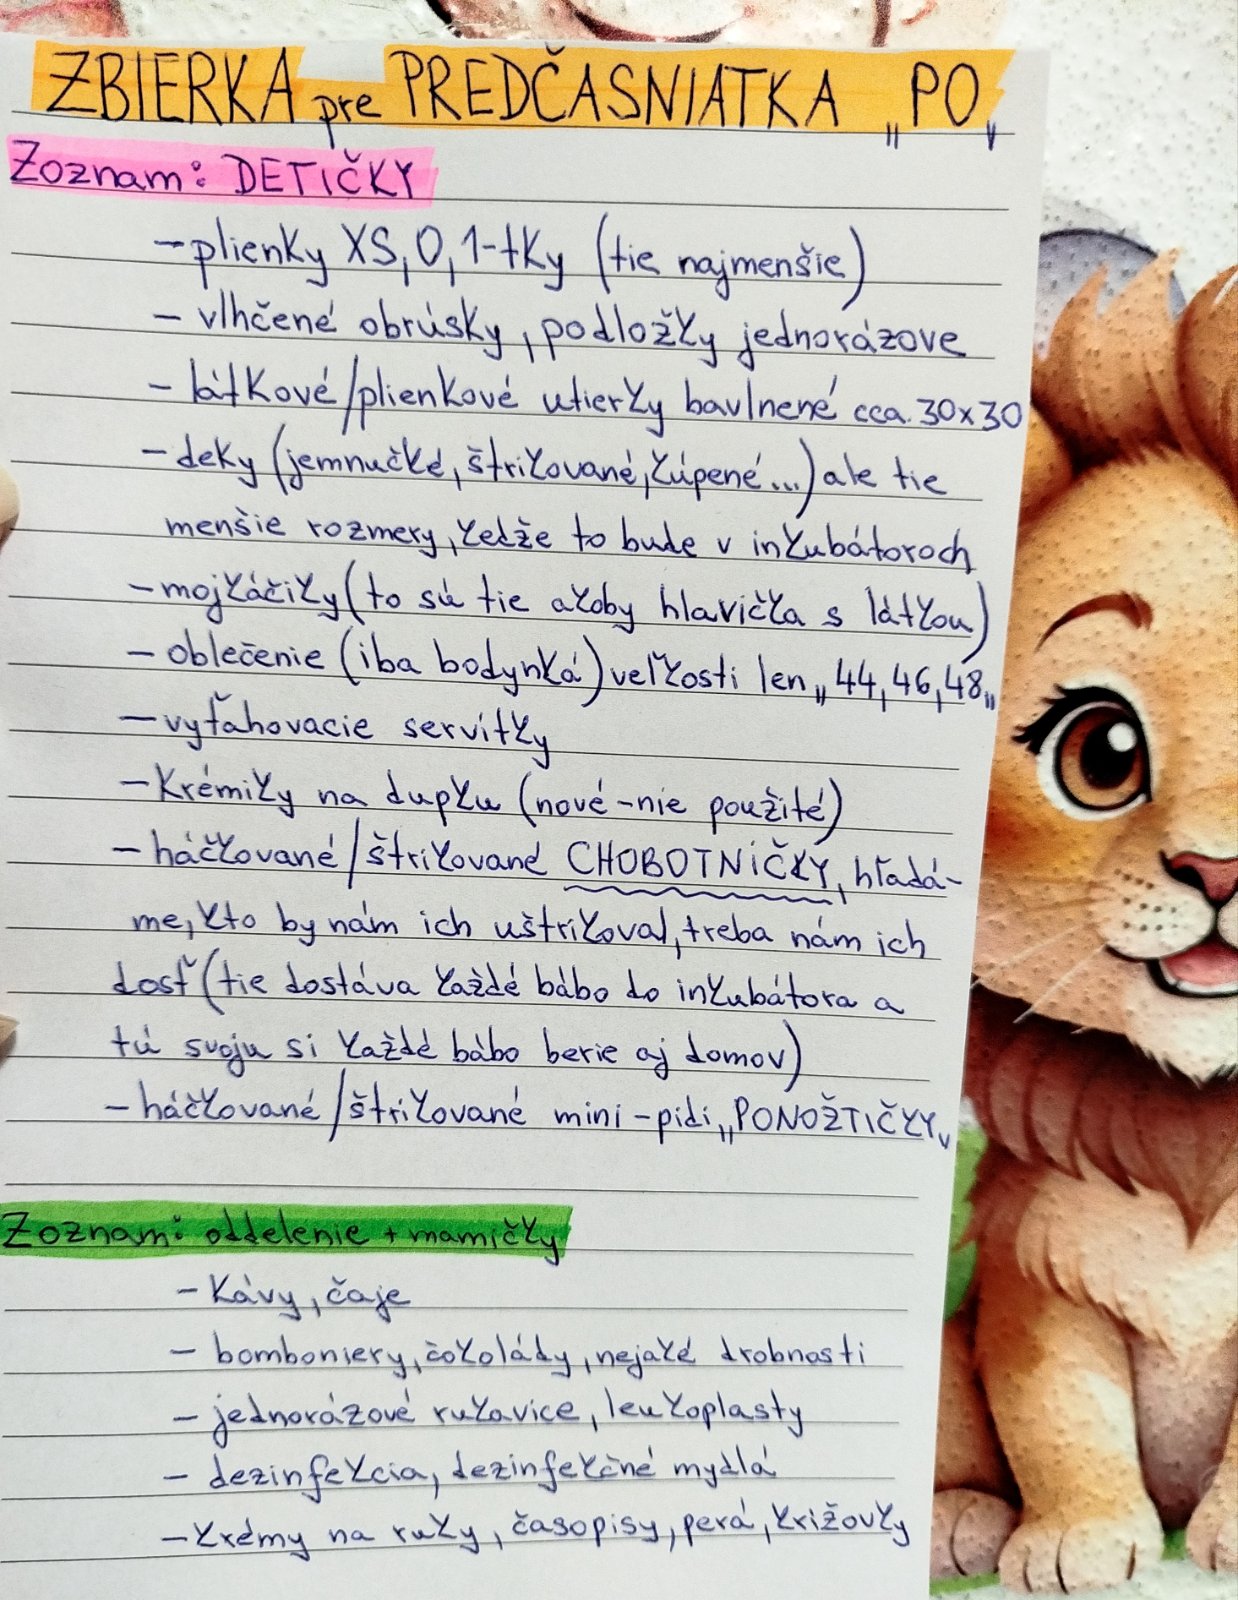 ZBIERKA pre PREDČASNIATKA „PO"
Zoznam: DETIČKY
- plienky XS, 0, 1-tky (tie najmenšie)
- vlhčené obrúsky, podložky jednorázove
- látkové/plienkové utierky bavlnené cca. 30x30
- deky (jemnučké, štrikované, kúpené...) ale tie
menšie rozmery, kedže to bude v inkubátoroch
- mojkáčiky (to sú tie akoby hlavička s látkou)
- oblečenie (iba bodynká) veľkosti len „44, 46, 48"
- vyťahovacie servítky
- Krémiky na dupku (nové-nie použité)
- háčkované/štrikované CHOBOTNIČKY, hľadá-
me, kto by nám ich uštrikoval, treba nám ich
dosť (tie dostáva každé bábo do inkubátora a
tú svoju si každé bábo berie aj domov)
- háčkované/štrikované mini-pidi „PONOŽTIČKY"
Zoznam: oddelenie + mamičky
- Kávy, čaje
- bomboniery, čokolády, nejaké drobnosti
- jednorázové rukavice, leukoplasty
- dezinfekcia, dezinfekčné mydlá
- krémy na ruky, časopisy, perá, krížovky